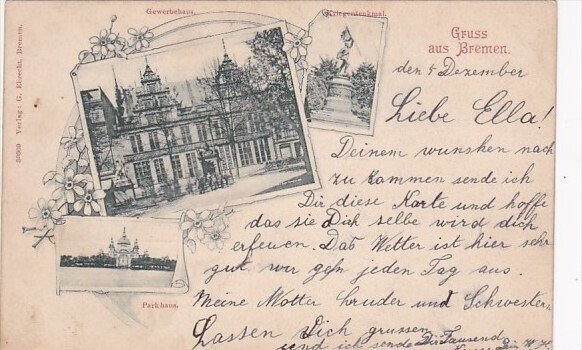 Gewerbehaus.
Kriegerdenkmal.
Gruss
aus Bremen.
Parkhaus.
36909 Verlag: G. Ebrecht, Bremen.
den 4 Dezember
Liebe Ella!
Deinem wunsken nach
zu kommen sende ich
Dir diese Karte und hoffe
das sie Dich selbe wird dich
erfeuen. Das Wetter ist hier sehr
gut, wir gehn jeden Tag aus.
Meine Motter bruder und Schwestern
Lassen Dich grussen
und ich sende Dir Tausend